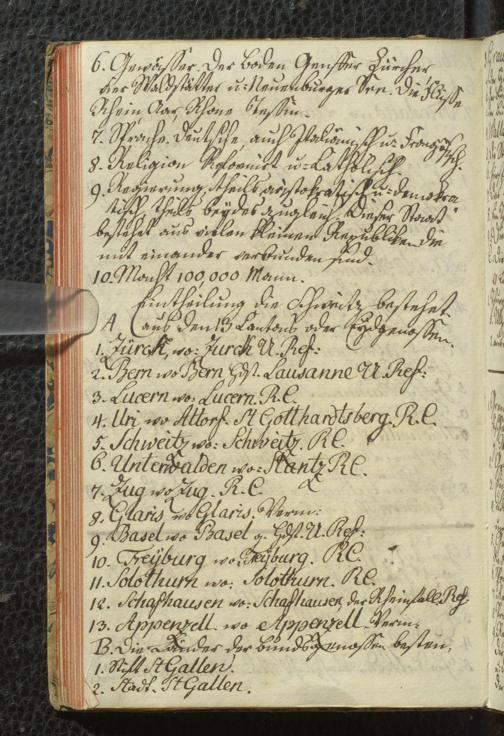 6. Gewässer. Der Boden Genffer Zürcher
der Waldstätter u: Neuenburger See. Die Flüsse
Rhein, Aar, Rhone Tessin.
7. Sprache. Deutsche, auch Italiänisch u: Französch.
8. Religion Reformirt u: Catholisch.
9. Regierung, theils aristokratisch u: demokra
tisch, theils beydes zugleich. Dieser Staat
bestehet aus vielen kleinen Republiken die
mit einander verbunden sind.
10. Macht 100,000 Mann.
Eintheilung die Schweitz bestehet
A (aus den 13 Cantons oder Eydgenossen.
1. Zürch, wo: Zurch U. Ref:
2. Bern wo Bern Hdst. Lausanne U. Ref:
3. Lucern wo: Lucern. R.C.
4. Uri wo Altorf. St Gotthardtsberg. R.C.
5. Schweitz wo: Schweitz. R.C.
6. Unterwalden wo: Stantz R.C.
7. Zug wo Zug. R.C.
8. Glaris wo Glaris. Verm:
9. Basel wo Basel g. Hdst. U. Ref:
10. Freyburg wo: Freyburg. R.C.
11. Solothurn wo: Solothurn. R.C.
12. Schafhausen wo: Schafhausen, der Rheinfall. Ref
13. Appenzell wo Appenzell Verm:
B. Die Länder der Bundsgenossen besten.
1. Stift St Gallen.
2. Stadt St Gallen.